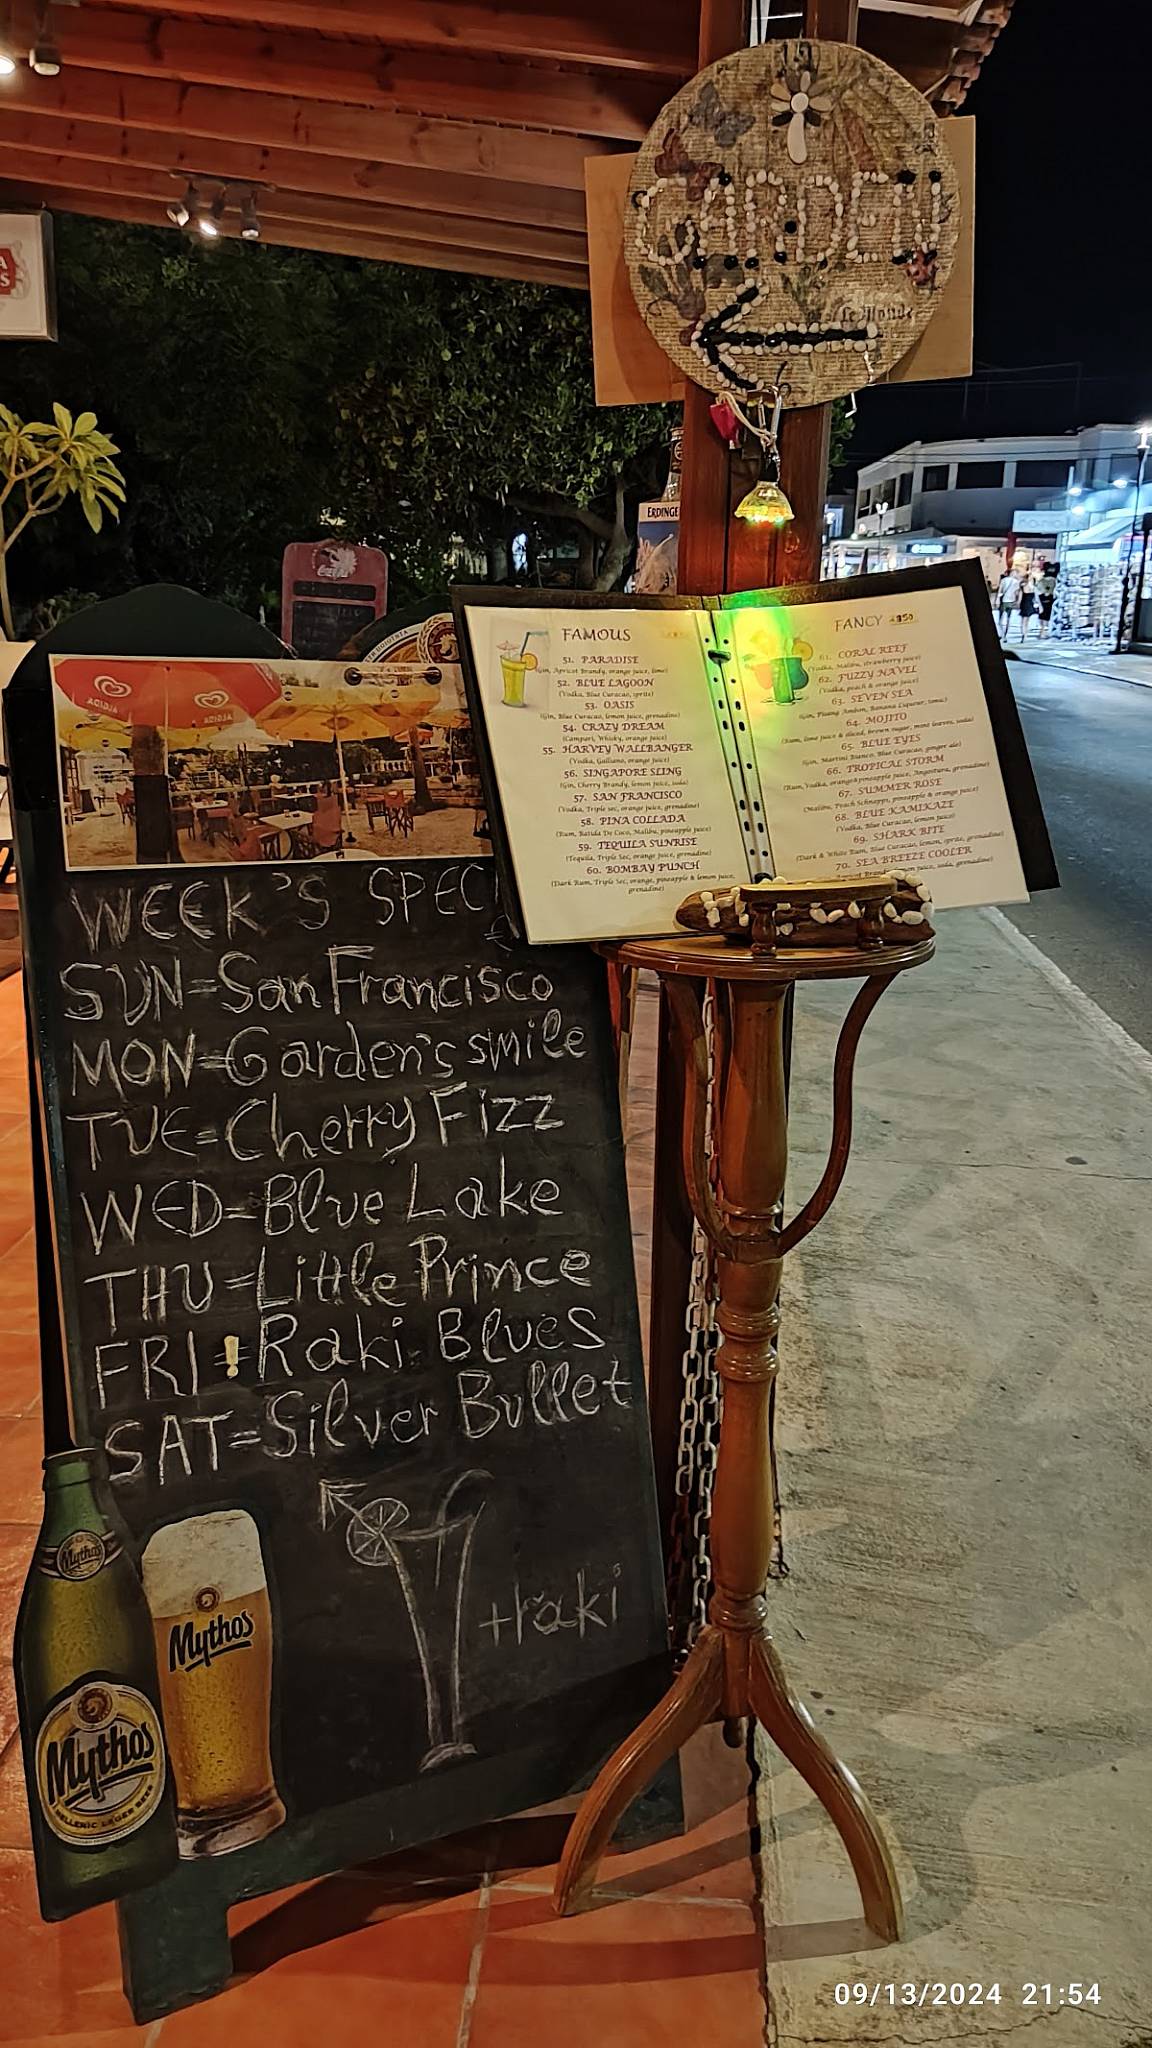 GARDEN
Le Monde
ERDINGER
Coca-Cola
FAMOUS
51. PARADISE
(Gin, Apricot Brandy, orange juice, lime)
52. BLUE LAGOON
(Vodka, Blue Curacao, sprite)
53. OASIS
(Gin, Blue Curacao, lemon juice, grenadine)
54. CRAZY DREAM
(Campari, Whisky, orange juice)
55. HARVEY WALLBANGER
(Vodka, Galliano, orange juice)
56. SINGAPORE SLING
(Gin, Cherry Brandy, lemon juice, soda)
57. SAN FRANCISCO
(Vodka, Triple sec, orange juice, grenadine)
58. PINA COLLADA
(Rum, Batida De Coco, Malibu, pineapple juice)
59. TEQUILA SUNRISE
(Tequila, Triple Sec, orange juice, grenadine)
60. BOMBAY PUNCH
(Dark Rum, Triple Sec, orange, pineapple & lemon juice,
grenadine)
FANCY
61. CORAL REEF
(Vodka, Malibu, strawberry juice)
62. FUZZY NAVEL
(Vodka, peach & orange juice)
63. SEVEN SEA
(Gin, Pisang Ambon, Banana Liqueur, tonic)
64. MOJITO
(Rum, lime juice & sliced, brown sugar, mint leaves, soda)
65. BLUE EYES
(Gin, Martini Bianco, Blue Curacao, ginger ale)
66. TROPICAL STORM
(Rum, Vodka, orange&pineapple juice, Angostura, grenadine)
67. SUMMER ROSE
(Malibu, Peach Schnapps, pineapple & orange juice)
68. BLUE KAMIKAZE
(Vodka, Blue Curacao, lemon juice)
69. SHARK BITE
(Dark & White Rum, Blue Curacao, lemon, sprite, grenadine)
70. SEA BREEZE COOLER
WEEK'S SPEC
SUN=San Francisco
MON=Garden's smile
TUE=Cherry Fizz
WED=Blue Lake
THU=Little Prince
FRI!=Raki Blues
SAT=Silver Bullet
+raki
Mythos
Mythos
Mythos
HELLENIC LAGER BEER
09/13/2024 21:54